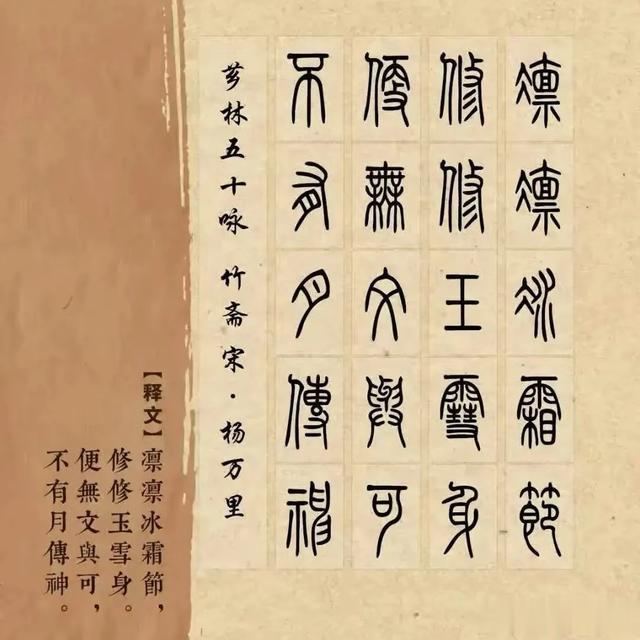 凛凛冰霜節
修修玉雪身
便無文與可
不有月傳神
芗林五十咏 竹斋 宋·杨万里
【释文】凛凛冰霜節，
修修玉雪身。
便無文與可，
不有月傳神。